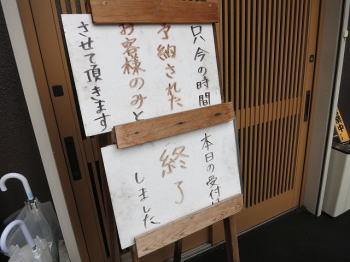 只今の時間
予約された
お客様のみと
させて頂きます
本日の受付
終了
しました
中